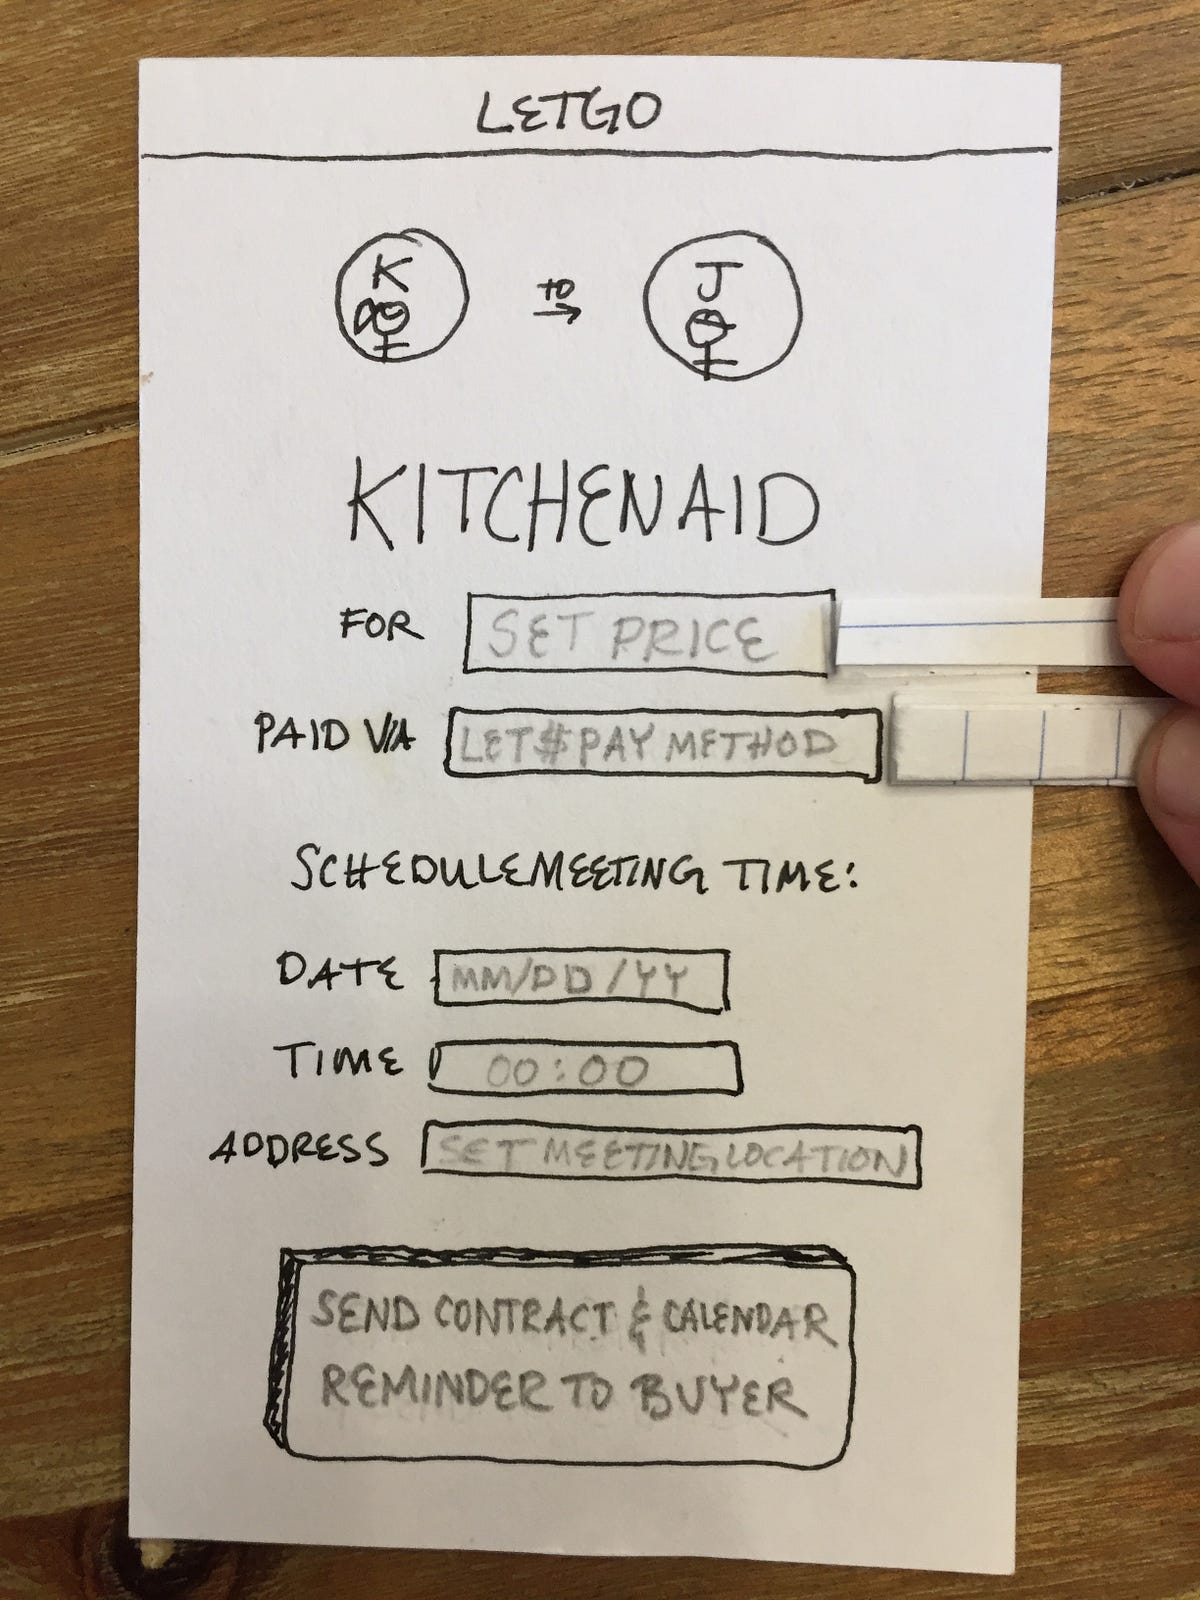 LETGO
K to J
KITCHENAID
FOR SET PRICE
PAID VIA LET$ PAY METHOD
SCHEDULE MEETING TIME:
DATE MM/DD/YY
TIME 00:00
ADDRESS SET MEETING LOCATION
SEND CONTRACT & CALENDAR
REMINDER TO BUYER